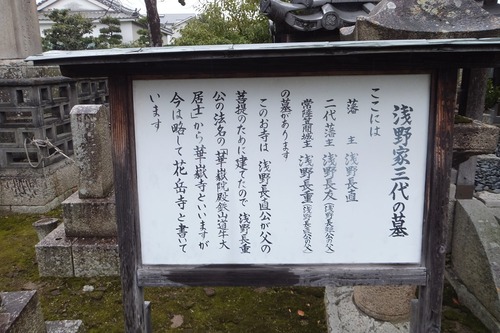 浅野家三代の墓
ここには
藩主 浅野長直
二代藩主 浅野長友(浅野長矩公の父)
常陸笠間城主 浅野長重(浅野長直公の父)
の墓があります
このお寺は 浅野長直公が父の
菩提のために建てたので 浅野長重
公の法名の「華嶽院殿鉄山道牛大
居士」から華嶽寺といいますが
今は略して花岳寺と書いて
います